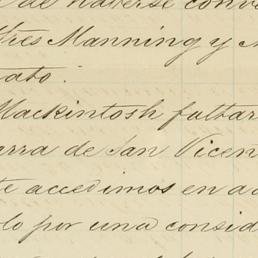 de haberse conv
tres Manning y M
tato.
Mackintosh faltar
arra de San Vicen
te accedimos en a
lo por una consid